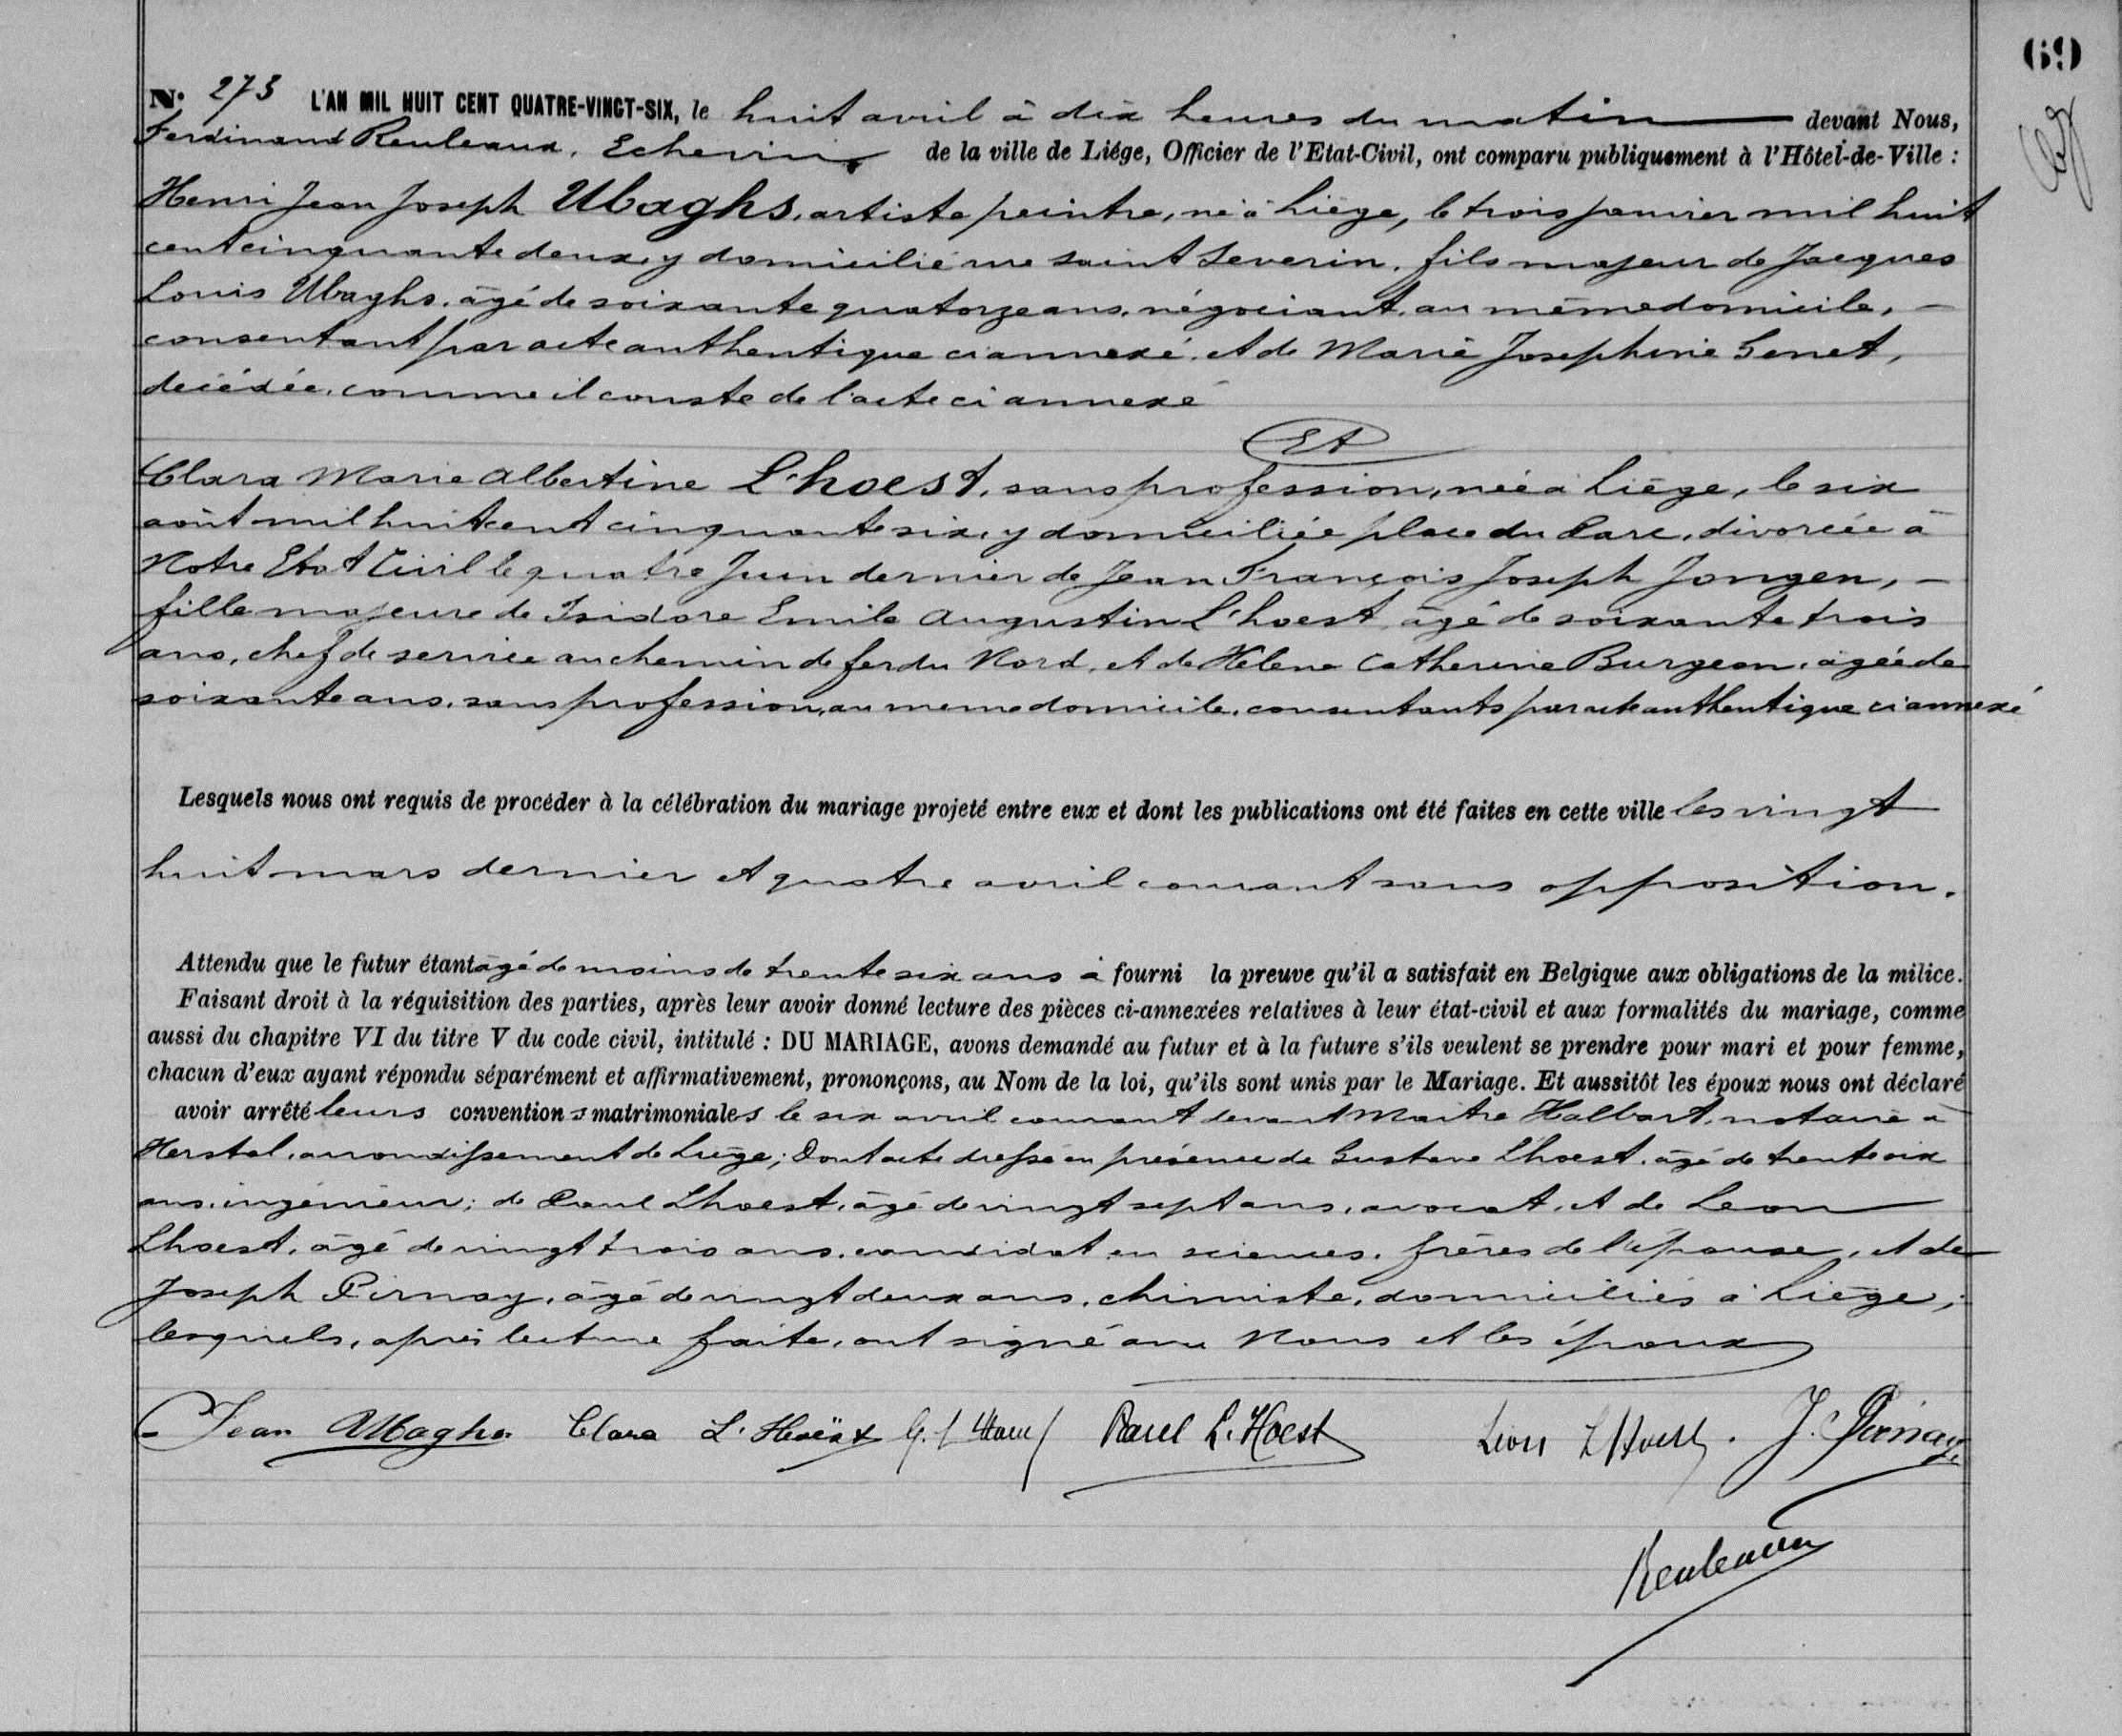 69
N° 273 L'AN MIL HUIT CENT QUATRE-VINGT-SIX, le huit avril à dix heures du matin devant Nous,
Ferdinand Reuleaux, Echevin de la ville de Liége, Officier de l'Etat-Civil, ont comparu publiquement à l'Hôtel-de-Ville :
Henri Jean Joseph Ubaghs, artiste peintre, né à Liège, le trois janvier mil huit
cent cinquante deux, y domicilié rue Saint Severin, fils majeur de Jacques
Louis Ubaghs, âgé de soixante quatorze ans, négociant, au même domicile, —
consentant par acte authentique ci annexé, et de Marie Josephine Genet,
décédée, comme il conste de l'acte ci annexé
Et
Clara Marie Albertine L'hoest, sans profession, née à Liège, le six
août mil huit cent cinquante six, y domiciliée place du Parc, divorcée à
Notre Etat Civil le quatre Juin dernier de Jean François Joseph Jongen, —
fille majeure de Isidore Emile Augustin L'hoest, âgé de soixante trois
ans, chef de service au chemin de fer du Nord, et de Hélène Catherine Burgeon, âgée de
soixante ans, sans profession, au meme domicile, consentants par acte authentique ci annexé
Lesquels nous ont requis de procéder à la célébration du mariage projeté entre eux et dont les publications ont été faites en cette ville les vingt
huit mars dernier et quatre avril courant sans opposition.
Attendu que le futur étant âgé de moins de trente six ans a fourni la preuve qu'il a satisfait en Belgique aux obligations de la milice.
Faisant droit à la réquisition des parties, après leur avoir donné lecture des pièces ci-annexées relatives à leur état-civil et aux formalités du mariage, comme
aussi du chapitre VI du titre V du code civil, intitulé : DU MARIAGE, avons demandé au futur et à la future s'ils veulent se prendre pour mari et pour femme,
chacun d'eux ayant répondu séparément et affirmativement, prononçons, au Nom de la loi, qu'ils sont unis par le Mariage. Et aussitôt les époux nous ont déclaré
avoir arrêté leurs conventions matrimoniales le six avril courant devant Maître Halbart, notaire à
Herstal, arrondissement de Liège; Dont acte dressé en présence de Gustave Lhoest, âgé de trente six
ans, ingénieur; de Paul Lhoest, âgé de vingt sept ans, avocat, et de Leon
Lhoest, âgé de vingt trois ans, candidat en sciences, frères de l'épouse, et de
Joseph Pirnay, âgé de vingt deux ans, chimiste, domiciliés à Liège;
lesquels, après lecture faite, ont signé avec Nous et les époux
Jean Ubaghs Clara L'Hoëst Paul L'Hoest Léon L'Hoest. J. Pirnay
Reuleaux